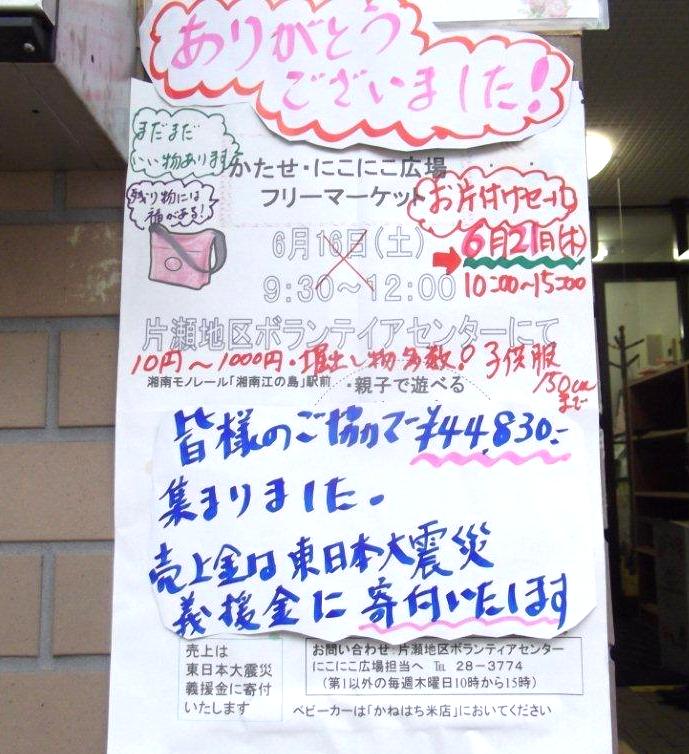 ありがとう
ございました!
まだまだ
いい物あります
かたせ・にこにこ広場
フリーマーケット
お片付けセール
残り物には
福がある!
6月16日(土)
6月21日(木)
9:30～12:00
10:00～15:00
片瀬地区ボランテイアセンターにて
10円～1000円・掘出し物多数!子供服
150cm
まで
湘南モノレール「湘南江の島」駅前
・親子で遊べる
皆様のご協力で¥44,830-
集まりました。
売上金は東日本大震災
義援金に寄付いたします
売上は
東日本大震災
義援金に寄付
いたします
お問い合わせ:片瀬地区ボランティアセンター
にこにこ広場担当へ ℡ 28-3774
(第1以外の毎週木曜日10時から15時)
ベビーカーは「かねはち米店」においてください